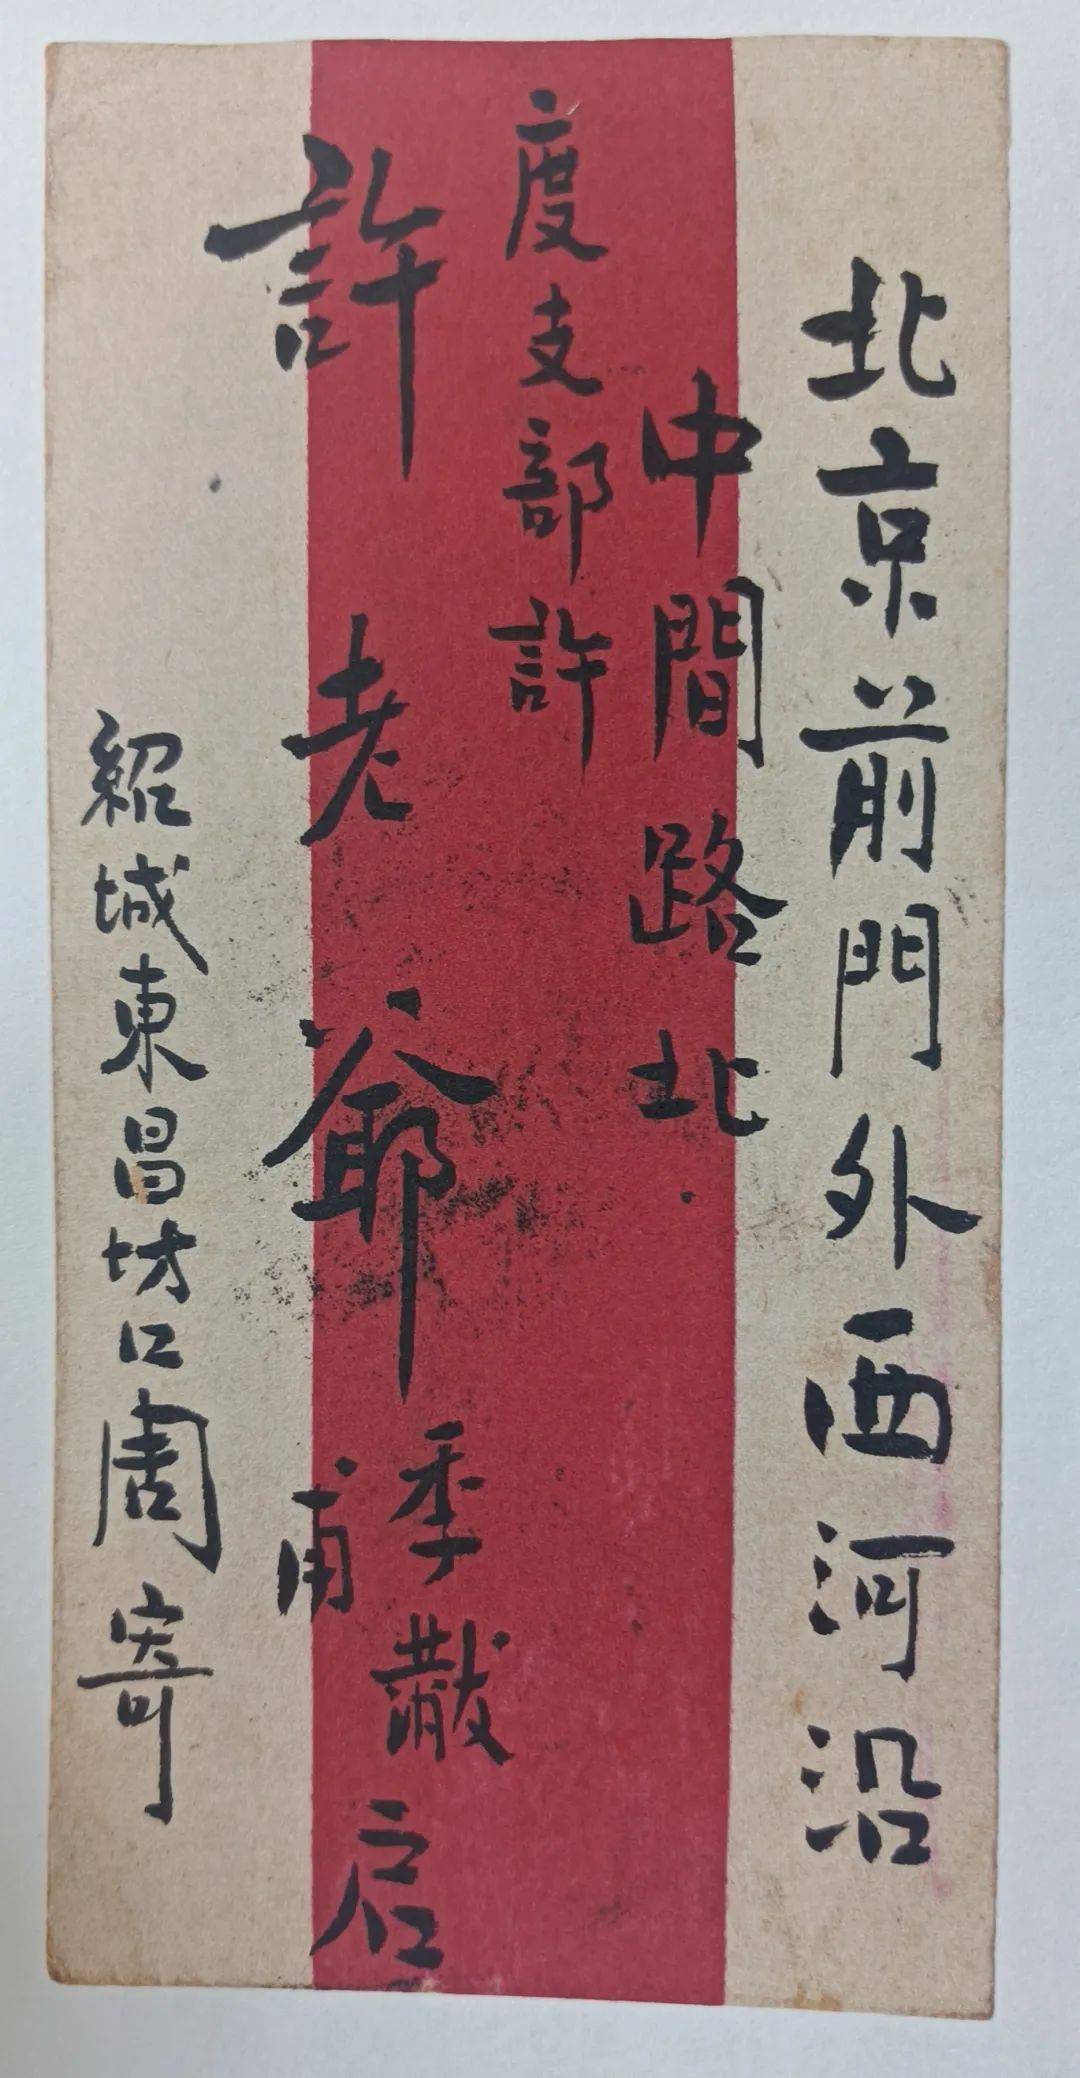 北京前門外西河沿
中間路北
度支部許
許老爺季黻甫启
紹城東昌坊口周寄